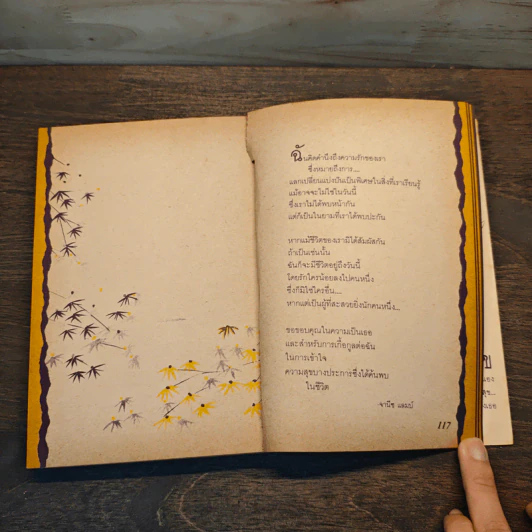 ฉันคิดคำนึงถึงความรักของเรา
ซึ่งหมายถึงการ....
แลกเปลี่ยนแบ่งปันเป็นพิเศษในสิ่งที่เราเรียนรู้
แม้อาจจะไม่ใช่ในวันนี้
ซึ่งเราไม่ได้พบหน้ากัน
แต่ก็เป็นในยามที่เราได้พบประกัน
หากแม้ชีวิตของเรามิได้สัมผัสกัน
ถ้าเป็นเช่นนั้น
ฉันก็จะมีชีวิตอยู่ถึงวันนี้
โดยรักใครน้อยลงไปคนหนึ่ง
ซึ่งก็มิใช่ใครอื่น....
หากแต่เป็นผู้ที่สะสวยยิ่งนักคนหนึ่ง...
ขอขอบคุณในความเป็นเธอ
และสำหรับการเกื้อกูลต่อฉัน
ในการเข้าใจ
ความสุขบางประการซึ่งได้ค้นพบ
ในชีวิต
จานีซ แลมบ์
117